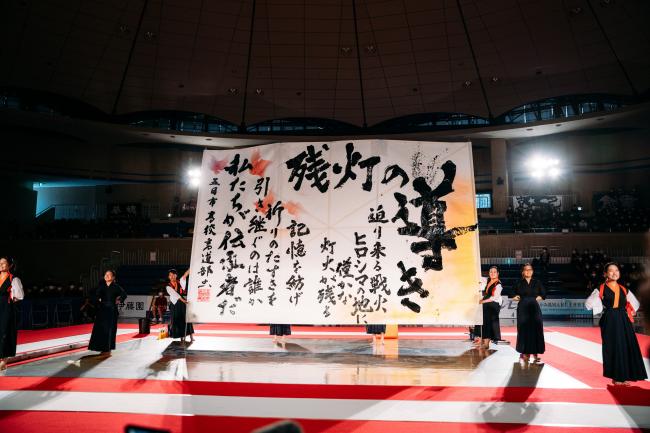 残灯の導き
迫り来る戦火
ヒロシマの地に
僅かな
灯火が残る
記憶を紡げ
祈りのたすきを
引き継ぐのは誰か
私たちが伝承者だ
五日市高校書道部
伊藤園